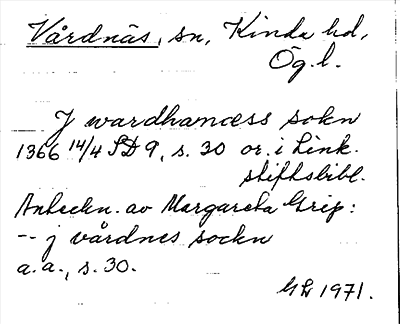 Vårdnäs, sn, Kinda hd,
Ög.l.
J wardhancess sokn
1366 14/4 SD 9, s. 30 or. i Link.
stiftsbibl.
Anteckn. av Margareta Grip:
-- j vårdnes sockn
a.a., s. 30.
GL 1971.